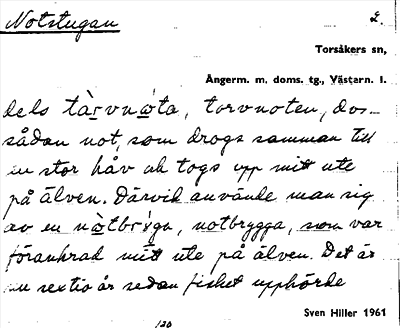 Notstugan 2.
Torsåkers sn,
Ångerm. m. doms. tg., Västern. l.
dels tàrvnòta, torvnoten, dvs.
sådan not, som drogs samman till
en stor håv och togs upp mitt ute
på älven. Därvid använde man sig
av en nòtbrýga, notbrygga, som var
förankrad mitt ute på älven. Det är
nu sextio år sedan fisket upphörde
Sven Hiller 1961
120